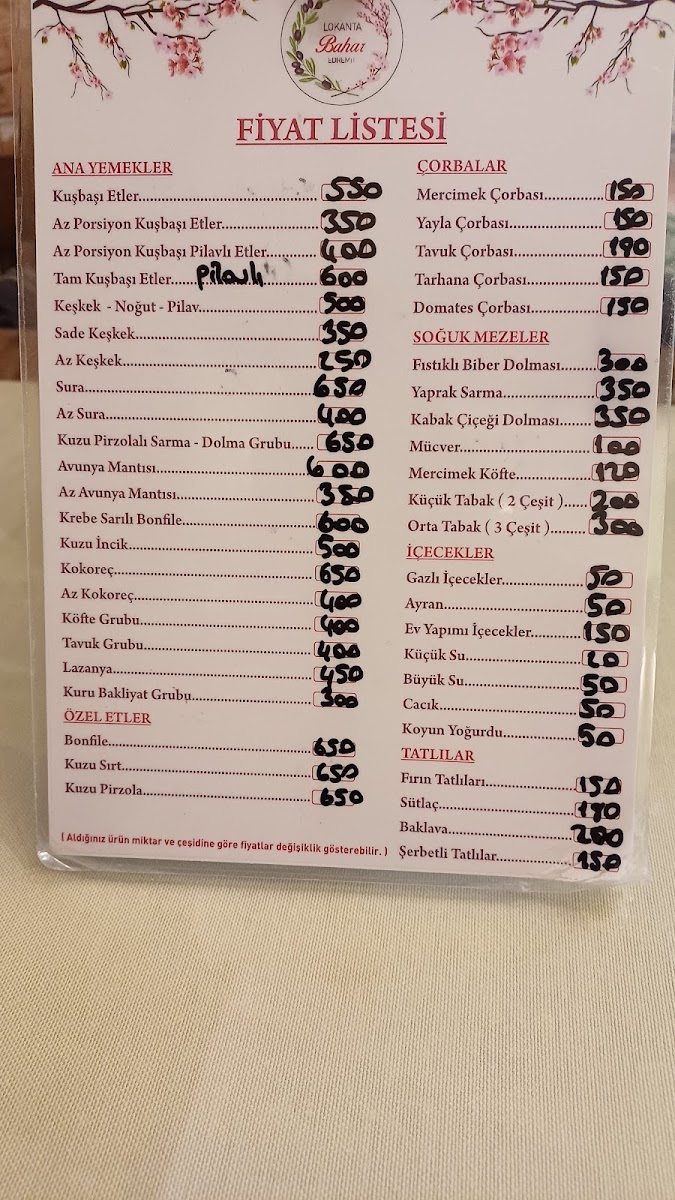 LOKANTA
Bahar
EDREMİT
FİYAT LİSTESİ
ANA YEMEKLER
Kuşbaşı Etler 550
Az Porsiyon Kuşbaşı Etler 350
Az Porsiyon Kuşbaşı Pilavlı Etler 400
Tam Kuşbaşı Etler Pilavlı 600
Keşkek - Noğut - Pilav 500
Sade Keşkek 350
Az Keşkek 250
Sura 650
Az Sura 400
Kuzu Pirzolalı Sarma - Dolma Grubu 650
Avunya Mantısı 600
Az Avunya Mantısı 350
Krebe Sarılı Bonfile 600
Kuzu İncik 500
Kokoreç 650
Az Kokoreç 400
Köfte Grubu 400
Tavuk Grubu 400
Lazanya 450
Kuru Bakliyat Grubu 300
ÖZEL ETLER
Bonfile 650
Kuzu Sırt 650
Kuzu Pirzola 650
( Aldığınız ürün miktar ve çeşidine göre fiyatlar değişiklik gösterebilir. )
ÇORBALAR
Mercimek Çorbası 150
Yayla Çorbası 150
Tavuk Çorbası 190
Tarhana Çorbası 150
Domates Çorbası 150
SOĞUK MEZELER
Fıstıklı Biber Dolması 300
Yaprak Sarma 350
Kabak Çiçeği Dolması 350
Mücver 100
Mercimek Köfte 120
Küçük Tabak ( 2 Çeşit ) 200
Orta Tabak ( 3 Çeşit ) 300
İÇECEKLER
Gazlı İçecekler 50
Ayran 50
Ev Yapımı İçecekler 150
Küçük Su 20
Büyük Su 50
Cacık 50
Koyun Yoğurdu 50
TATLILAR
Fırın Tatlıları 150
Sütlaç 190
Baklava 200
Şerbetli Tatlılar 150